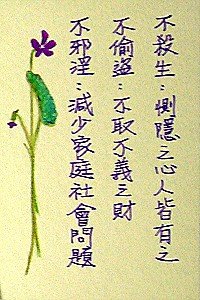 不殺生：惻隱之心人皆有之
不偷盜：不取不義之財
不邪淫：減少家庭社會問題